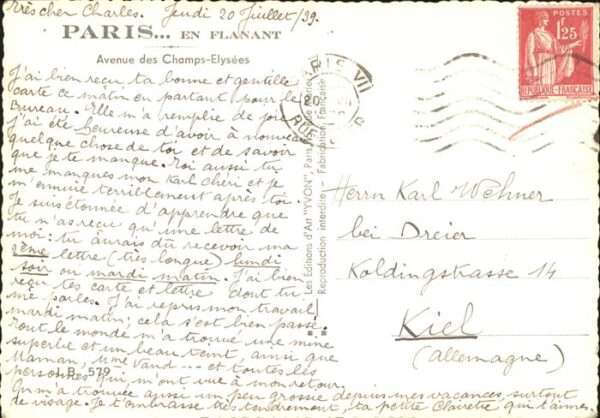 Très cher Charles. Jeudi 20 Juillet/39.
PARIS... EN FLANANT
Avenue des Champs-Elysées
J'ai bien reçu ta bonne et gentille
carte ce matin en partant pour le
Bureau. Elle m'a remplie de joie
J'ai été heureuse d'avoir à nouveau
quelque chose de toi et de savoir
que je te manque. Toi aussi tu
me manques mon Karl chéri et je
m'ennuie terriblement après toi.
Je suis étonnée d'apprendre que
tu n'as reçu qu'une lettre de
moi: tu aurais dû recevoir ma
2ème lettre (très longue) lundi
soir ou mardi matin. J'ai bien
reçu tes carte et lettre dont tu
me parles. J'ai repris mon travail
mardi matin; cela s'est bien passé.
Tout le monde m'a trouvé une mine
superbe et un beau teint, ainsi que
Maman, ... et toutes les
I.B. 579
personnes qui m'ont vue à mon retour.
On m'a trouvée aussi un peu grossie depuis mes vacances, surtout
de visage. Je t'embrasse très tendrement, ta petite qui t'aime.
Les Editions d'Art "YVON", Paris
Reproduction interdite Fabrication Française
PARIS VII
20
RUE
POSTES
1,25
REPUBLIQUE-FRANÇAISE
Herrn Karl Wehner
bei Dreier
Koldingstrasse 14
Kiel
(Allemagne)